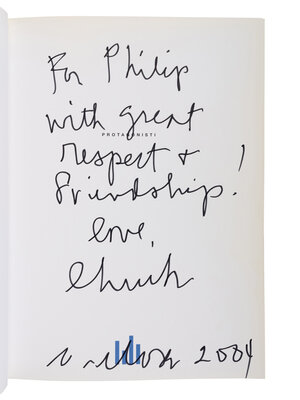 For Philip
with great
PROTAGONISTI
respect +
Friendship!
love,
Chuck
2004